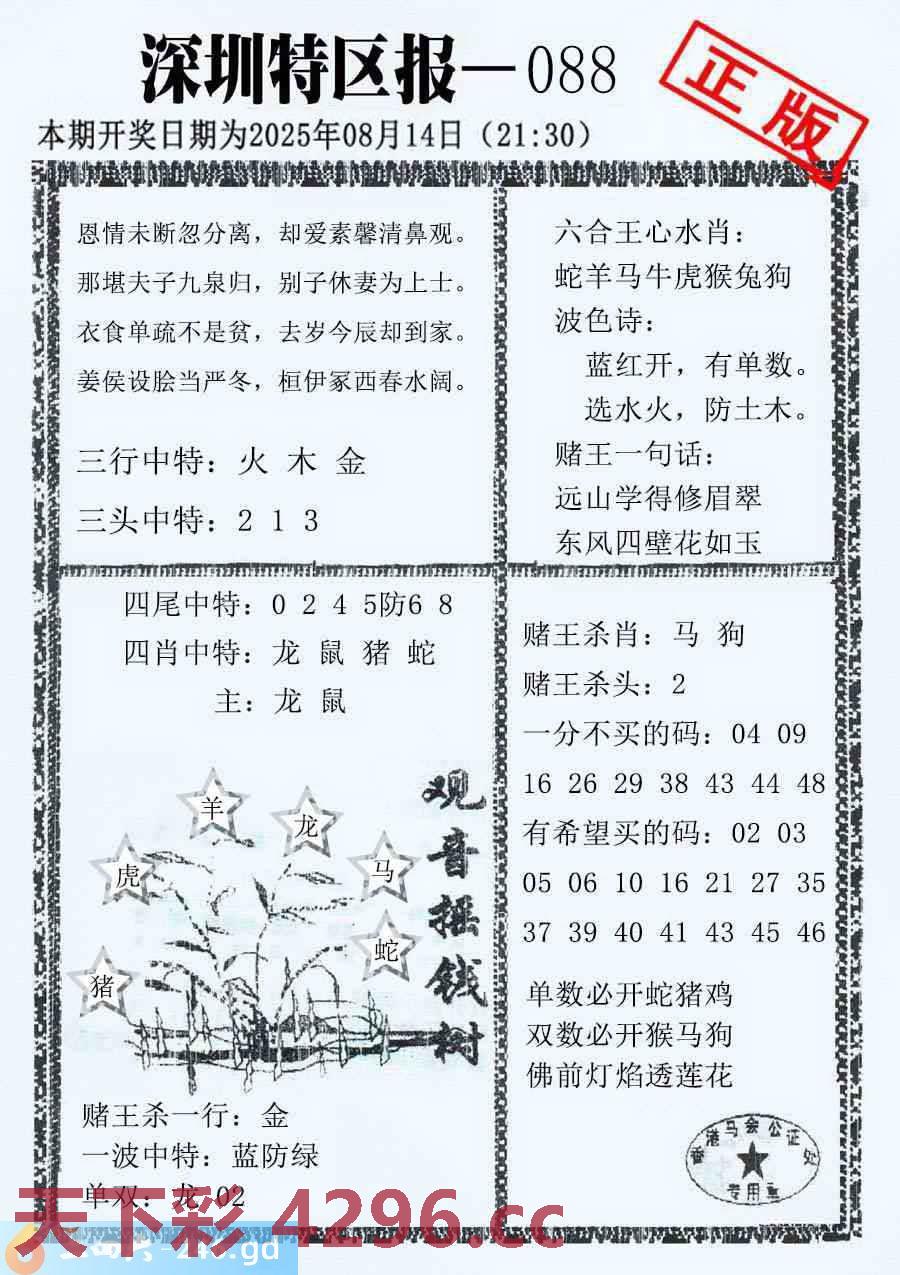 深圳特区报—088
正版
本期开奖日期为2025年08月14日（21:30）
恩情未断忽分离，却爱素馨清鼻观。
那堪夫子九泉归，别子休妻为上士。
衣食单疏不是贫，去岁今辰却到家。
姜侯设脍当严冬，桓伊冢西春水阔。
三行中特：火 木 金
三头中特：2 1 3
六合王心水肖：
蛇羊马牛虎猴兔狗
波色诗：
蓝红开，有单数。
选水火，防土木。
赌王一句话：
远山学得修眉翠
东风四壁花如玉
四尾中特：0 2 4 5防6 8
四肖中特：龙 鼠 猪 蛇
主：龙 鼠
观音摇钱树
羊
龙
虎
马
蛇
猪
赌王杀一行：金
一波中特：蓝防绿
单双：龙 02
赌王杀肖：马 狗
赌王杀头：2
一分不买的码：04 09
16 26 29 38 43 44 48
有希望买的码：02 03
05 06 10 16 21 27 35
37 39 40 41 43 45 46
单数必开蛇猪鸡
双数必开猴马狗
佛前灯焰透莲花
香港马会公证处
专用章
天下彩 4296.cc